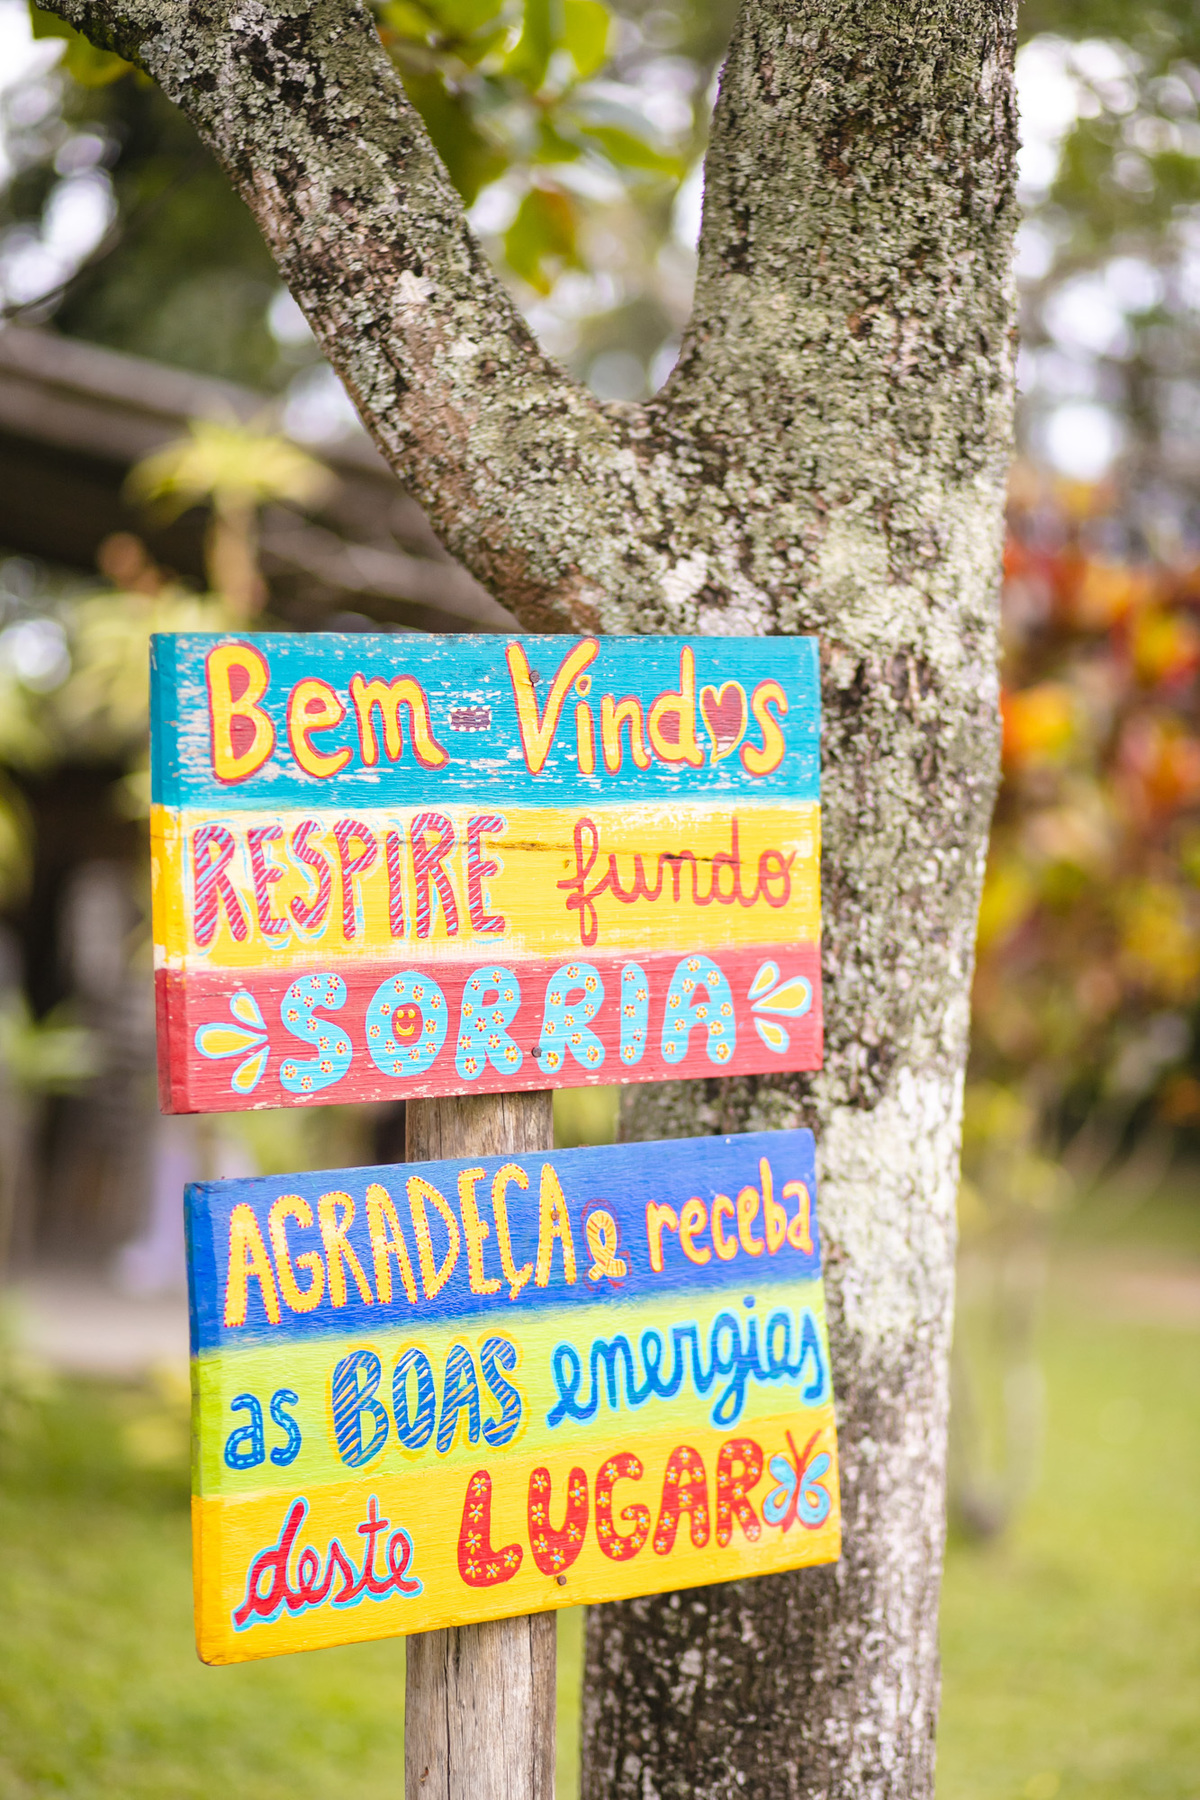 Bem-Vindos
RESPIRE fundo
SORRIA
AGRADEÇA e receba
as BOAS energias
deste LUGAR